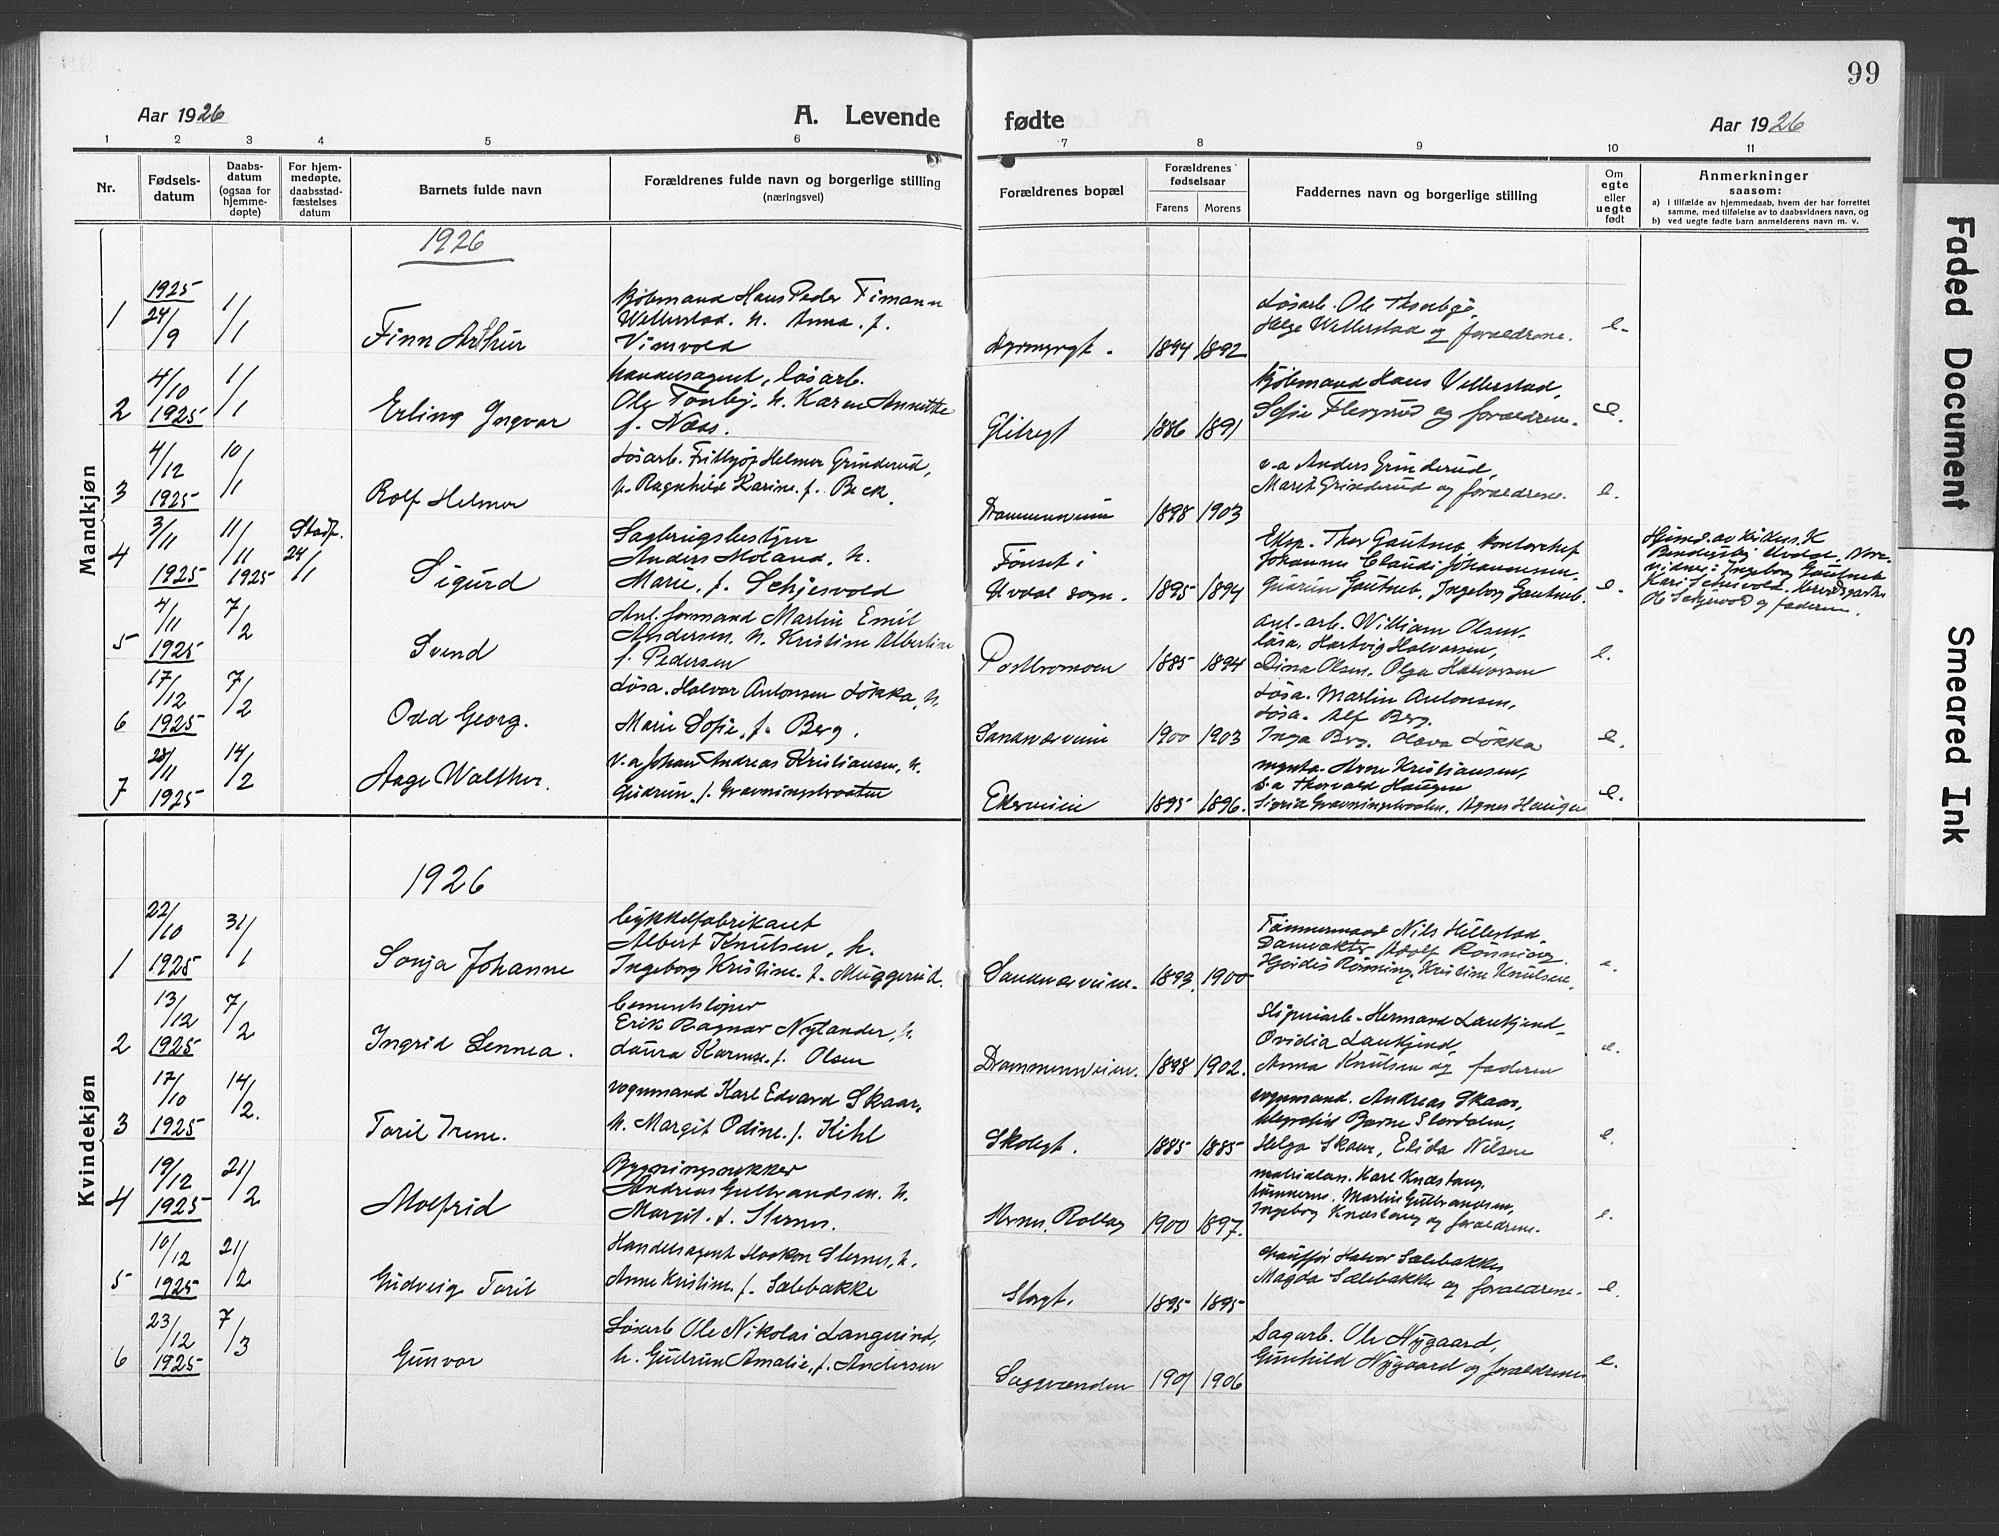 99
Aar 1926
A. Levende
fødte
Aar 1926
1 2 3 4 5 6 7 8 9 10 11
Nr.
Fødsels-
datum
Daabs-
datum
(ogsaa for
hjemme-
døpte)
For hjem-
medøpte,
daabsstad-
fæstelses
datum
Barnets fulde navn
Forældrenes fulde navn og borgerlige stilling
(næringsvei)
Forældrenes bopæl
Forældrenes
fødselsaar
Farens Morens
Faddernes navn og borgerlige stilling
Om
egte
eller
uegte
født
Anmerkninger
saasom:
a) i tilfælde av hjemmedaab, hvem der har forrettet
samme, med tilføielse av to daabsvidners navn, og
b) ved uegte fødte barn anmelderens navn m. v.
Mandkjøn
1926
1
1925
24/9
1/1
Finn Arthur
Kjøbmand Hans Peder Fimann
Wellerstad. h. Anna. f.
Vinvold
Dyrmyrgt.
1894 1892
Løsarb. Ole
Helge Wellerstad og forældrene.
e.
2
4/10
1925
1/1
Erling Ingvar
løsarb.
h. Karen Annette
f. Næss.
Glitregt
1886 1891
Kjøbmand Hans Vellerstad,
og forældrene.
e.
3
4/12
1925
10/1
Rolf Helmer
Løsarb. Frithjof Helmer Grinderud,
h. Ragnhild Karine. f. Beck.
Drammenveien
1898 1903
v.a Anders Grinderud,
Maret Grinderud og forældrene.
e.
4
3/11
1925
11/11
1925
Stadf.
24/1
Sigurd
Sagbrugsbestyrer
Anders Moland, h.
Marie, f. Schjesvold
Tønset i
Uvdal sogn.
1895 1894
Eksp. Thor Gautneb, kontorchef
Johannes Claudi Johannessen.
Gudrun Gautneb, Ingeborg Gautneb.
e.
Hjemd. av kirkes. K
Uvdal,
vidner: Ingeborg Gautneb
og faderen.
5
4/11
1925
7/2
Svend
Anl. formand Martin Emil
Andersen. h. Kristine Albertine
f. Pedersen
Postbromoen
1885 1894
anl. arb. William Olsen,
løsa. Hartvig Halvorsen,
Dina Olsen. Olga Halvorsen
e.
6
17/12
1925
7/2
Odd Georg.
Løsa. Halvor Antonsen Løkka, h.
Marie Sofie, f. Berg.
Sandsværveien
1900 1903
Løsa. Martin Antonsen,
Løsa. Alf Berg.
Inga Berg. Olava Løkka
e.
7
28/11
1925
14/2
Aage Walther.
v.a Johan Andreas Kristiansen, h.
Gudrun, f. Gravningsbraaten
Eikerveien
1895 1896.
Arne Kristiansen,
v.a Thorvald Haugen
Sigrid Gravningsbraaten, Agnes Haugen
e.
Kvindekjøn
1926
1
22/10
1925
31/1
Sonja Johanne
Cykkelfabrikant
Albert Knutsen, h.
Ingeborg Kristine. f. Muggerud.
Sandsværveien.
1893. 1900
Tømmermand Nils Hellestad
Damvokter Adolf Rønning.
Hjørdis Rønning, Kristine Knutsen.
e.
2
13/12
1925
7/2
Ingrid Lennea.
Cementstøper
Erik Ragnar Nylander, h.
Laura Karense. f. Olsen
Drammenveien.
1898 1902.
Hermand Laukjend
Ovidia Laukjend,
Anna Knutsen og faderen
e.
3
17/10
1925
14/2.
Toril Irene.
vognmand Karl Edvard Skaar,
h. Margit Odine. f. Kihl
Skolegt.
1885 1885
vognmand. Andreas Skaar,
Bjarne Stordalen,
Helga Skaar, Elida Nilsen
e.
4
19/12
1925
21/2
Molfrid
Bygningssnekker
Andreas Gulbrandsen. h.
Margit. f. Sternes.
Rollag
1900 1897.
Karl Knæstang,
tømmerm. Martin Gulbrandsen,
Ingeborg Knæstang og forældrene.
e.
5
10/12
1925
21/2
Gudveig Toril
Handelsagent Haakon Sternes, h.
Anne Kristine. f. Sælebakke
Storgt.
1895 1895
chauffør Halvor Sælebakke,
Magda Sælebakke og forældrene.
e.
6
23/12
1925
7/3
Gunvor
Løsarb Ole Nikolai Langerud,
h. Gudrun Amalie, f. Andersen
Saggrenden
1901 1906
Sagarb. Ole Nygaard,
Gunhild Nygaard og forældrene
e.
Faded Document
Smeared Ink